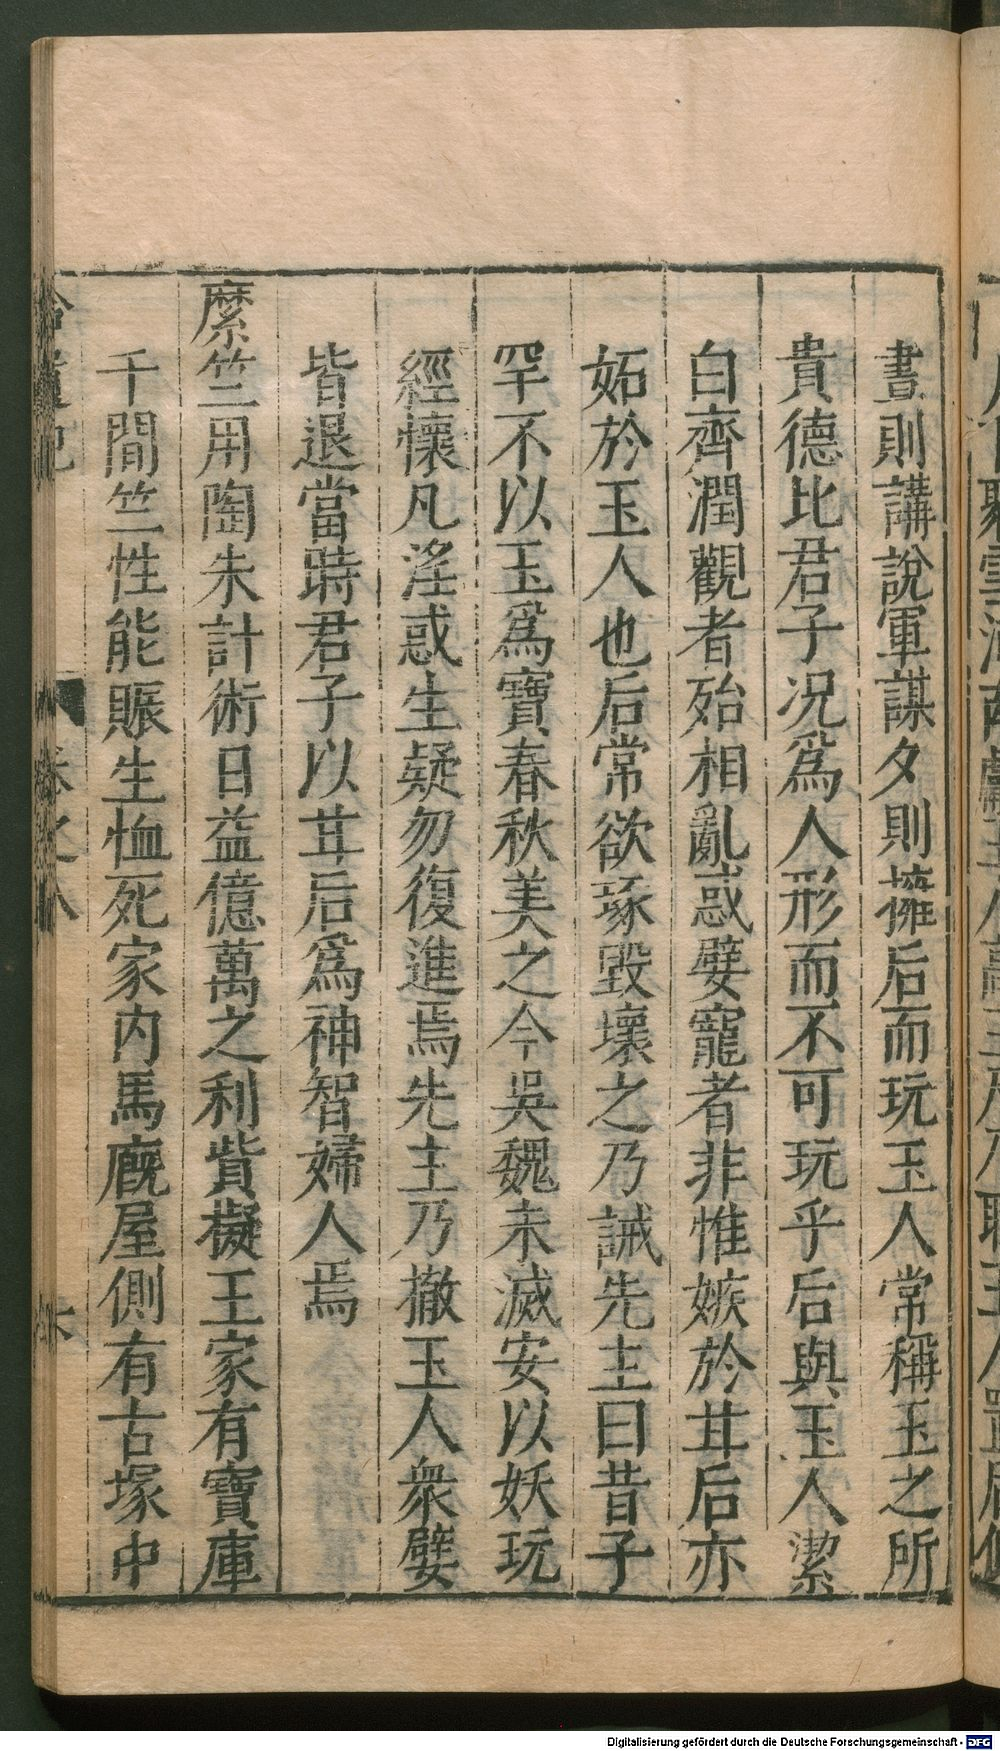 晝則講說軍謀夕則擁后而玩玉人常稱玉之所
貴德比君子况爲人形而不可玩乎后與玉人潔
白齊潤觀者殆相亂惑嬖寵者非惟嫉於甘后亦
妬於玉人也后常欲琢毀壞之乃誡先主曰昔子
罕不以玉爲寶春秋美之今吳魏未滅安以妖玩
經懷凡淫惑生疑勿復進焉先主乃撤玉人衆嬖
皆退當時君子以甘后爲神智婦人焉
縻竺用陶朱計術日益億萬之利貲擬王家有寶庫
千間竺性能賑生恤死家内馬廐屋側有古塚中
卷之八
Digitalisierung gefördert durch die Deutsche Forschungsgemeinschaft - DFG